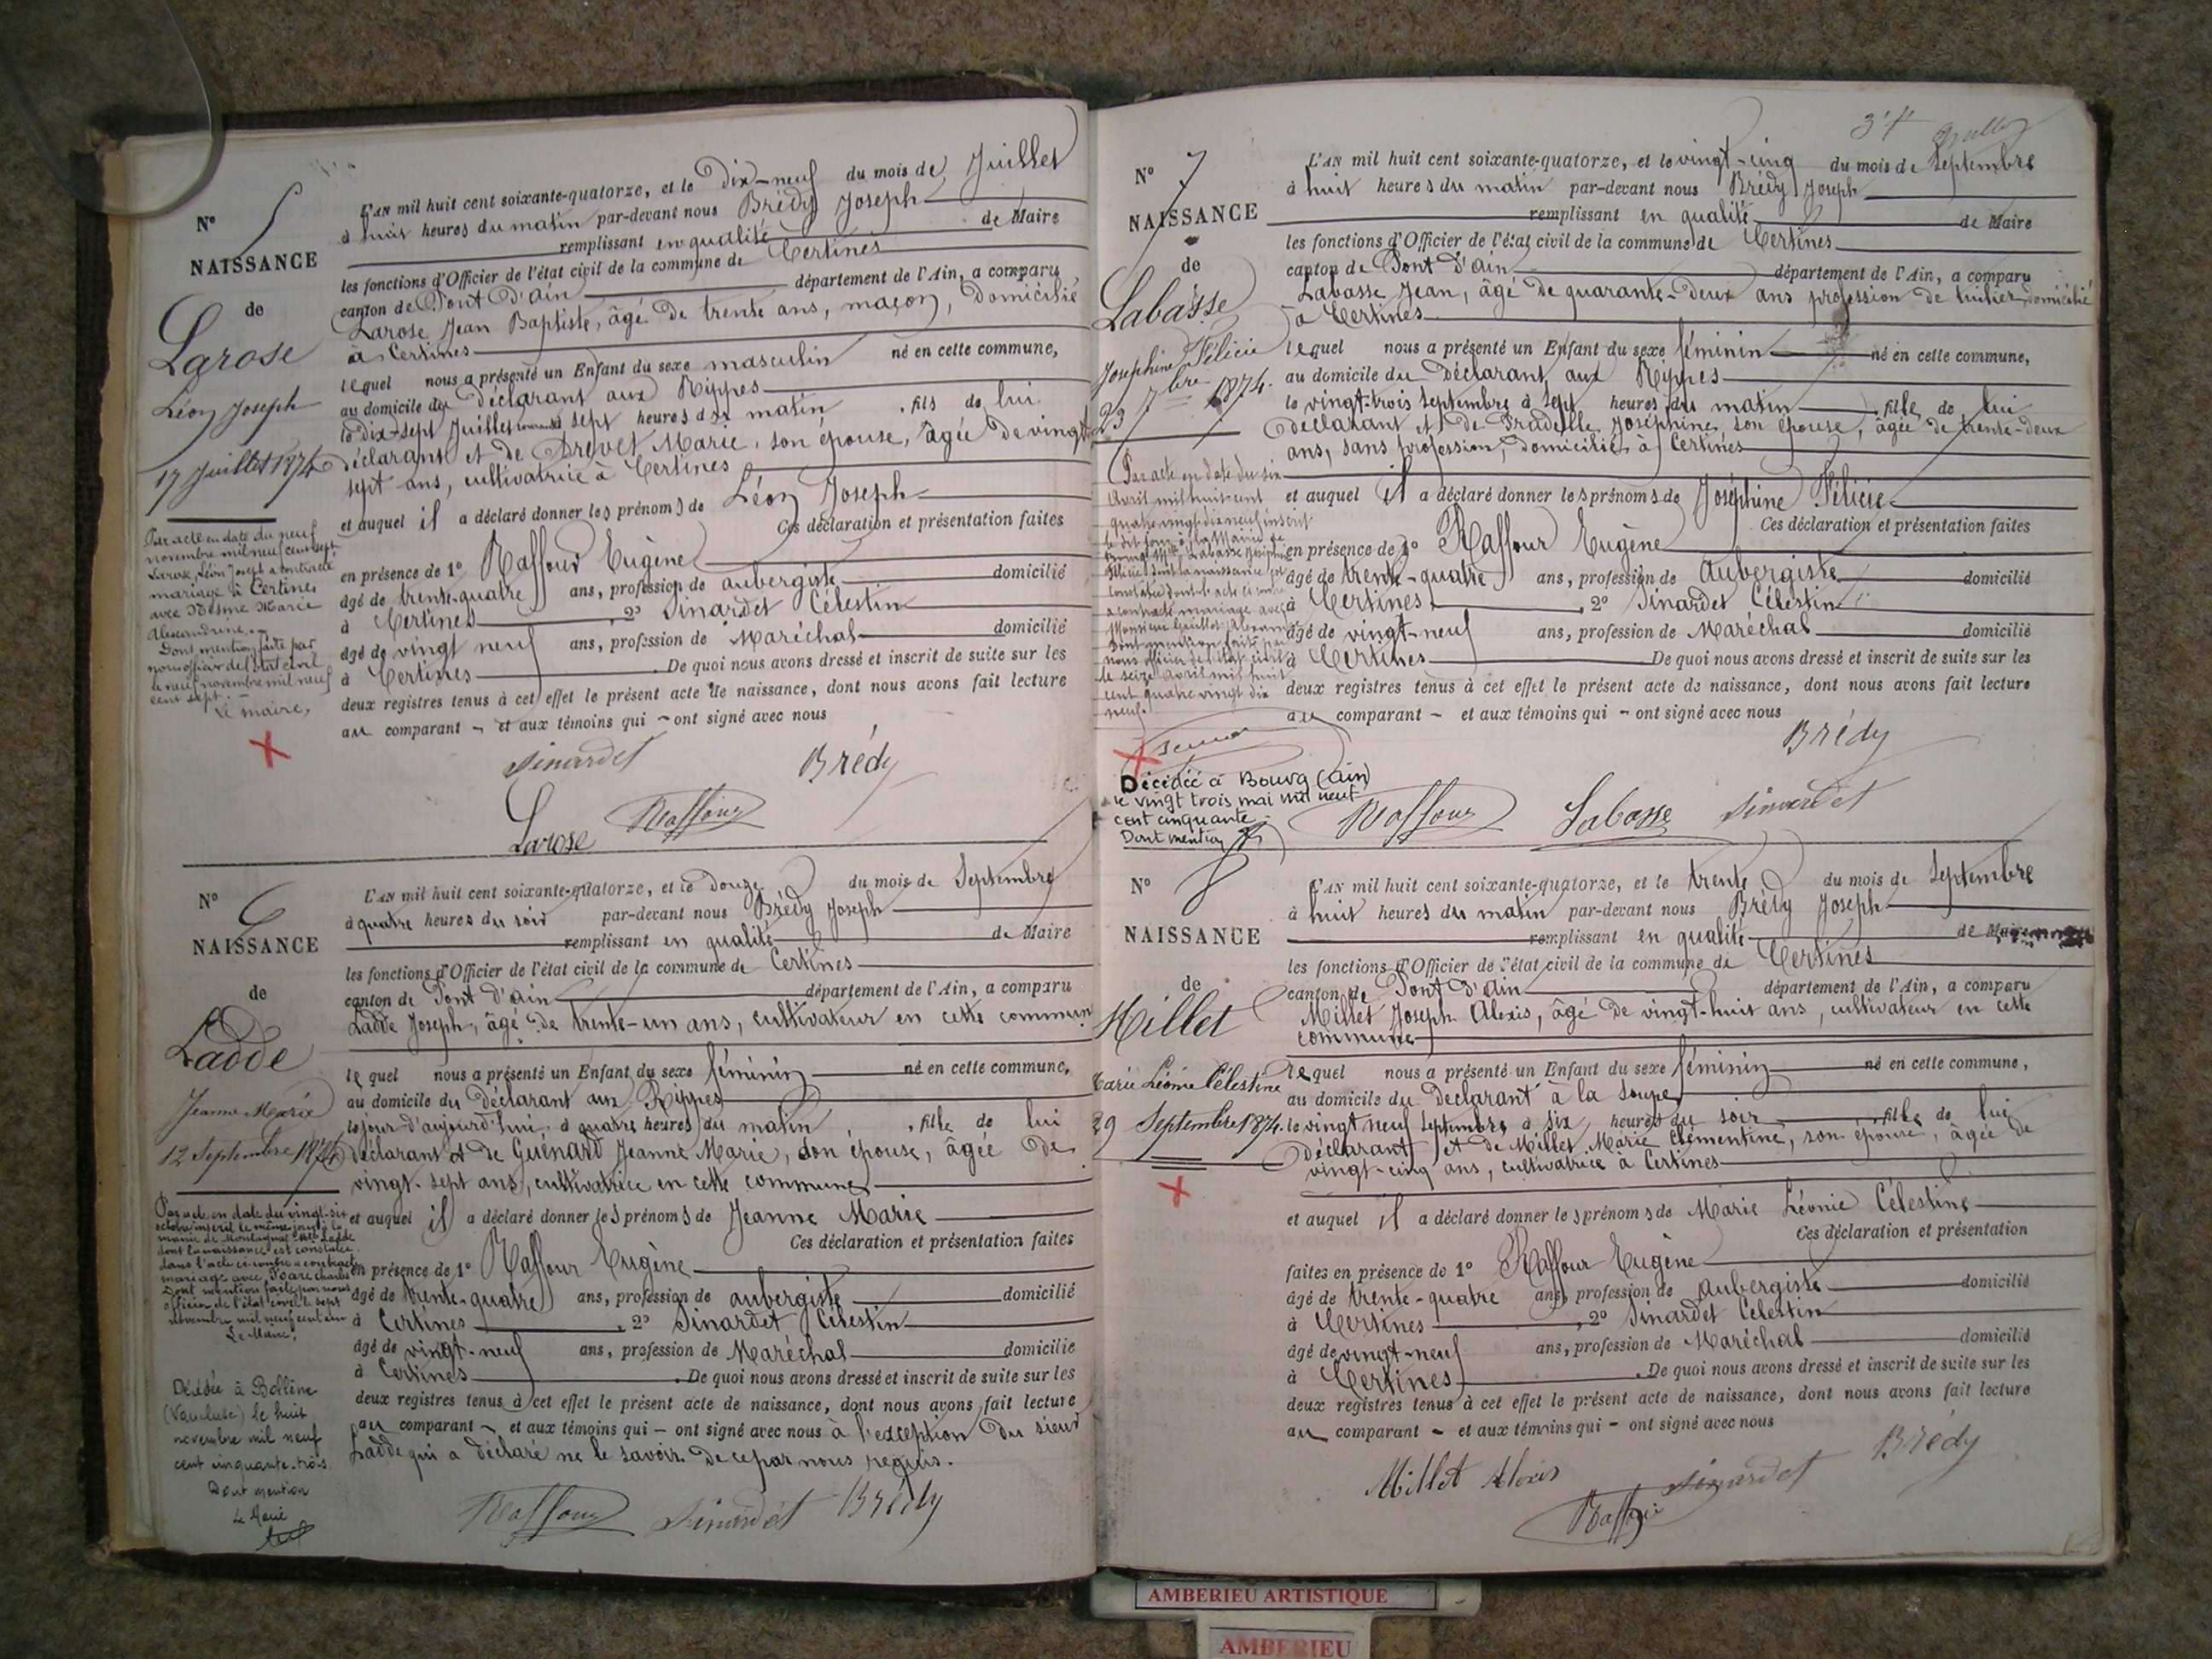 N° 5
NAISSANCE
de
Larose
Léon Joseph
17 Juillet 1874
Par acte en date du neuf
novembre mil neuf cent sept
Larose Léon Joseph a contracté
mariage à Certines
avec Mesme Marie
Alexandrine.
Dont mention faite par
nous officier de l'état civil
le neuf novembre mil neuf
cent sept.
Le maire,
L'AN mil huit cent soixante-quatorze, et le Dix-neuf du mois de Juillet
à huit heures du matin par-devant nous Brédy Joseph
remplissant en qualité de Maire
les fonctions d'Officier de l'état civil de la commune de Certines
canton de Pont d'ain département de l'Ain, a comparu
Larose Jean Baptiste, âgé de trente ans, maçon, domicilié
à Certines
lequel nous a présenté un Enfant du sexe masculin né en cette commune,
au domicile du déclarant aux Rippes
le dix-sept Juillet à sept heures du matin, fils de lui
déclarant et de Brevet Marie, son épouse, âgée de vingt
sept ans, cultivatrice à Certines
et auquel il a déclaré donner les prénoms de Léon Joseph
Ces déclaration et présentation faites
en présence de 1° Raffour Eugène
âgé de trente-quatre ans, profession de aubergiste domicilié
à Certines, 2° Sinardet Célestin
âgé de vingt neuf ans, profession de Maréchal domicilié
à Certines. De quoi nous avons dressé et inscrit de suite sur les
deux registres tenus à cet effet le présent acte de naissance, dont nous avons fait lecture
au comparant - et aux témoins qui - ont signé avec nous
Sinardet Brédy
Larose Raffour
N° 6
NAISSANCE
de
Ladde
Jeanne Marie
12 Septembre 1874
Par acte en date du vingt-six
octobre inscrit le même jour à la
mairie de Montagnat Mlle Ladde
dont la naissance est constatée
dans l'acte ci-contre a contracté
mariage avec Charles
Dont mention faite par nous
officier de l'état civil le sept
novembre mil neuf cent un
Le Maire,
Décédée à Bollène
(Vaucluse) le huit
novembre mil neuf
cent cinquante-trois
Dont mention
Le Maire
L'AN mil huit cent soixante-quatorze, et le douze du mois de Septembre
à quatre heures du soir par-devant nous Brédy Joseph
remplissant en qualité de Maire
les fonctions d'Officier de l'état civil de la commune de Certines
canton de Pont d'ain département de l'Ain, a comparu
Ladde Joseph, âgé de trente-un ans, cultivateur en cette commune
lequel nous a présenté un Enfant du sexe féminin né en cette commune,
au domicile du déclarant aux Rippes
le jour d'aujourd'hui à quatre heures du matin, fille de lui
déclarant et de Guénard Jeanne Marie, son épouse, âgée de
vingt-sept ans, cultivatrice en cette commune
et auquel il a déclaré donner les prénoms de Jeanne Marie
Ces déclaration et présentation faites
en présence de 1° Raffour Eugène
âgé de trente-quatre ans, profession de aubergiste domicilié
à Certines, 2° Sinardet Célestin
âgé de vingt-neuf ans, profession de Maréchal domicilié
à Certines. De quoi nous avons dressé et inscrit de suite sur les
deux registres tenus à cet effet le présent acte de naissance, dont nous avons fait lecture
au comparant - et aux témoins qui - ont signé avec nous à l'exception du sieur
Ladde qui a déclaré ne le savoir de ce par nous requis.
Raffour Sinardet Brédy
N° 7
NAISSANCE
de
Labasse
Joséphine Félicie
23 7bre 1874.
Par acte en date du six
Avril mil huit cent
quatre vingt dix neuf inscrit
le dit jour à la Mairie de
Mlle Labasse Joséphine
Félicie dont la naissance est
constatée dont l'acte ci contre
a contracté mariage avec
Monsieur Guillot
Dont mention faite par
nous officier de l'état civil
le seize avril mil huit
cent quatre vingt dix
neuf.
Décédée à Bourg (Ain)
le vingt trois mai mil neuf
cent cinquante.
Dont mention
L'AN mil huit cent soixante-quatorze, et le vingt-cinq du mois de Septembre
à huit heures du matin par-devant nous Brédy Joseph
remplissant en qualité de Maire
les fonctions d'Officier de l'état civil de la commune de Certines
canton de Pont d'ain département de l'Ain, a comparu
Labasse Jean, âgé de quarante-deux ans profession de domicilié
à Certines
lequel nous a présenté un Enfant du sexe féminin né en cette commune,
au domicile du déclarant aux Rippes
le vingt-trois Septembre à sept heures du matin, fille de lui
déclarant et de Pradelle Joséphine son épouse, âgée de trente-deux
ans, sans profession, domiciliés à Certines
et auquel il a déclaré donner les prénoms de Joséphine Félicie
Ces déclaration et présentation faites
en présence de 1° Raffour Eugène
âgé de trente-quatre ans, profession de Aubergiste domicilié
à Certines, 2° Sinardet Célestin
âgé de vingt-neuf ans, profession de Maréchal domicilié
à Certines De quoi nous avons dressé et inscrit de suite sur les
deux registres tenus à cet effet le présent acte de naissance, dont nous avons fait lecture
au comparant - et aux témoins qui - ont signé avec nous
Brédy
Raffour Labasse Sinardet
N° 8
NAISSANCE
de
Millet
Marie Léonie Célestine
29 Septembre 1874.
L'AN mil huit cent soixante-quatorze, et le trente du mois de Septembre
à huit heures du matin par-devant nous Brédy Joseph
remplissant en qualité de Maire
les fonctions d'Officier de l'état civil de la commune de Certines
canton de Pont d'ain département de l'Ain, a comparu
Millet Joseph Alexis, âgé de vingt-huit ans, cultivateur en cette
commune
lequel nous a présenté un Enfant du sexe féminin né en cette commune,
au domicile du Déclarant à la Soupe
le vingt neuf Septembre à six heures du soir, fille de lui
déclarant et de Millet Marie Clémentine, son épouse, âgée de
vingt-cinq ans, cultivatrice à Certines
et auquel il a déclaré donner les prénoms de Marie Léonie Célestine
Ces déclaration et présentation
faites en présence de 1° Raffour Eugène
âgé de trente-quatre ans, profession de Aubergiste domicilié
à Certines, 2° Sinardet Célestin
âgé de vingt-neuf ans, profession de Maréchal domicilié
à Certines. De quoi nous avons dressé et inscrit de suite sur les
deux registres tenus à cet effet le présent acte de naissance, dont nous avons fait lecture
au comparant - et aux témoins qui - ont signé avec nous
Millet Alexis Sinardet Brédy
Raffour
AMBERIEU ARTISTIQUE
AMBERIEU